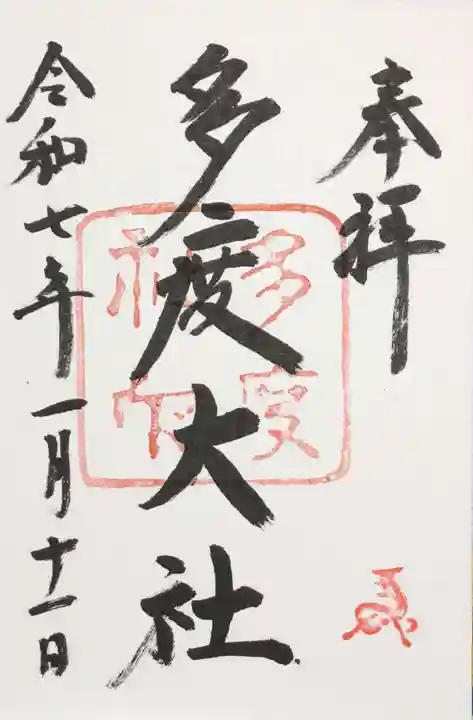 奉拝
多度大社
令和七年一月十一日
多度